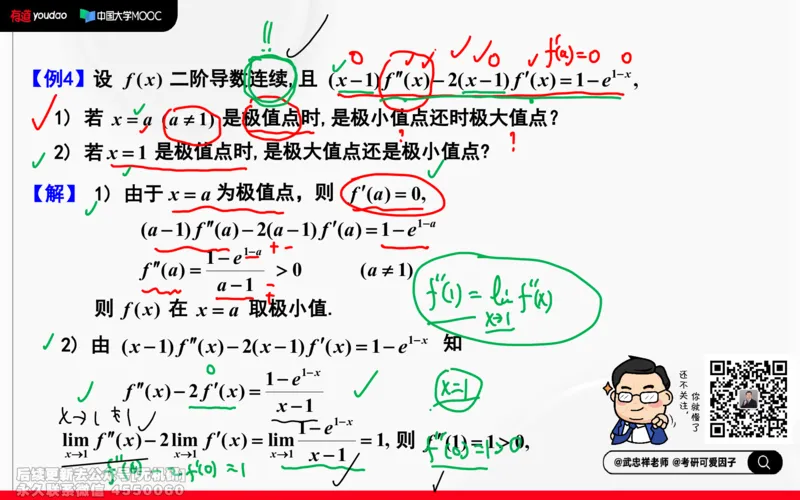 有道youdao 中国大学MOOC
!! 0 0 f'(a)=0 0
【例4】设 f(x) 二阶导数连续,且 (x−1)f″(x)−2(x−1)f′(x)=1−e^{1−x},
1) 若 x=a (a≠1) 是极值点时,是极小值点还时极大值点?
2) 若x=1 是极值点时,是极大值点还是极小值点? ? ?
【解】 1) 由于 x=a 为极值点，则 f′(a)=0,
(a−1)f″(a)−2(a−1)f′(a)=1−e^{1−a}
f″(a)=\frac{1−e^{1−a}}{a−1}>0 (a≠1) + − − +
则 f(x) 在 x=a 取极小值.
f″(1)=lim_{x→1} f″(x)
2) 由 (x−1)f″(x)−2(x−1)f′(x)=1−e^{1−x} 知
0
f″(x)−2f′(x)=\frac{1−e^{1−x}}{x−1} x=1
x→1 ≠1
lim_{x→1} f″(x)−2lim_{x→1} f′(x)=lim_{x→1} \frac{1−e^{1−x}}{x−1}=1, 则 f″(1)=1>0,
还不关注，
你就懂了
@武忠祥老师 @考研可爱因子
永久联系微信 4550060